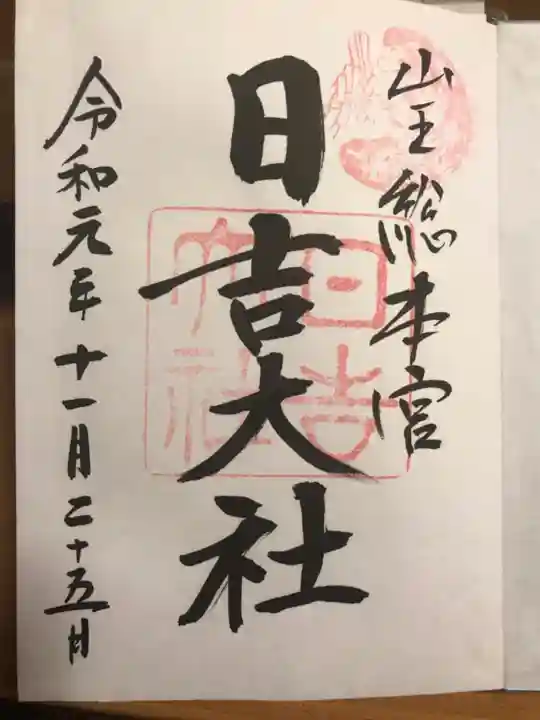 山王総本宮
日吉大社
日吉大社
令和元年十一月二十五日